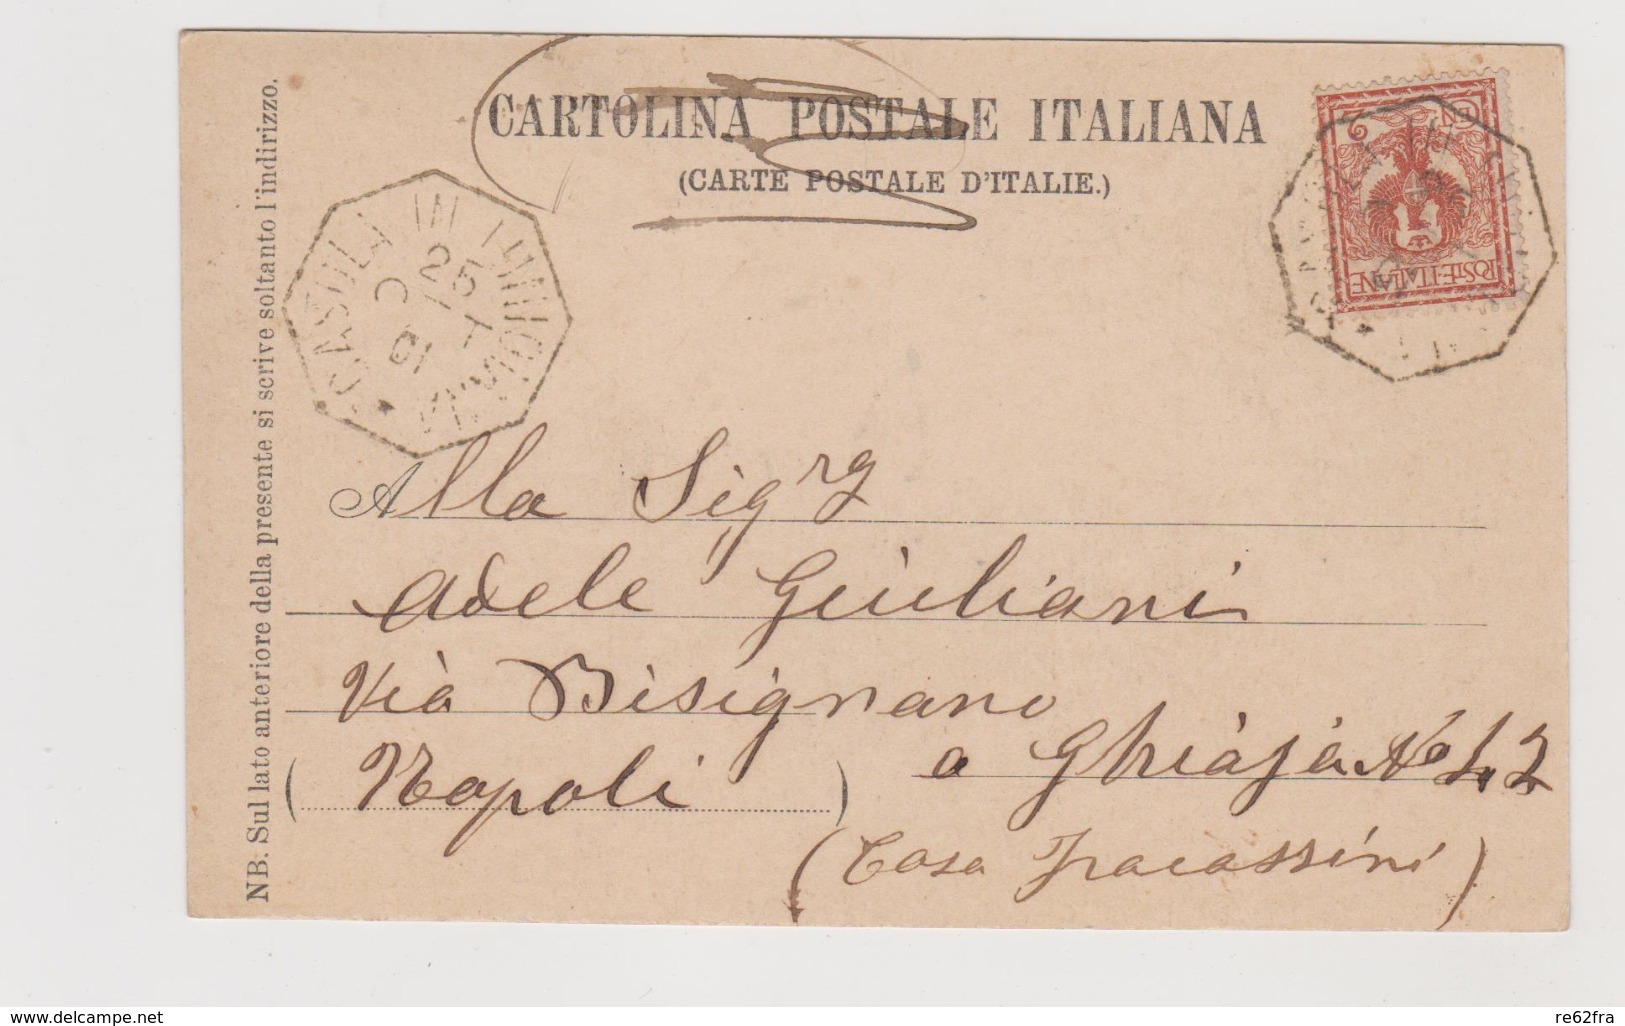 CARTOLINA POSTALE ITALIANA
(CARTE POSTALE D'ITALIE.)
NB. Sul lato anteriore della presente si scrive soltanto l'indirizzo.
CASOLA IN LUNIGIANA
25
OTT
01
POSTE ITALIANE
Alla Sigra
Adele Giuliani
Via Bisignano
a Chiaja No 42
(Napoli)
(Casa Fracassini)
www.delcampe.net
re62fra